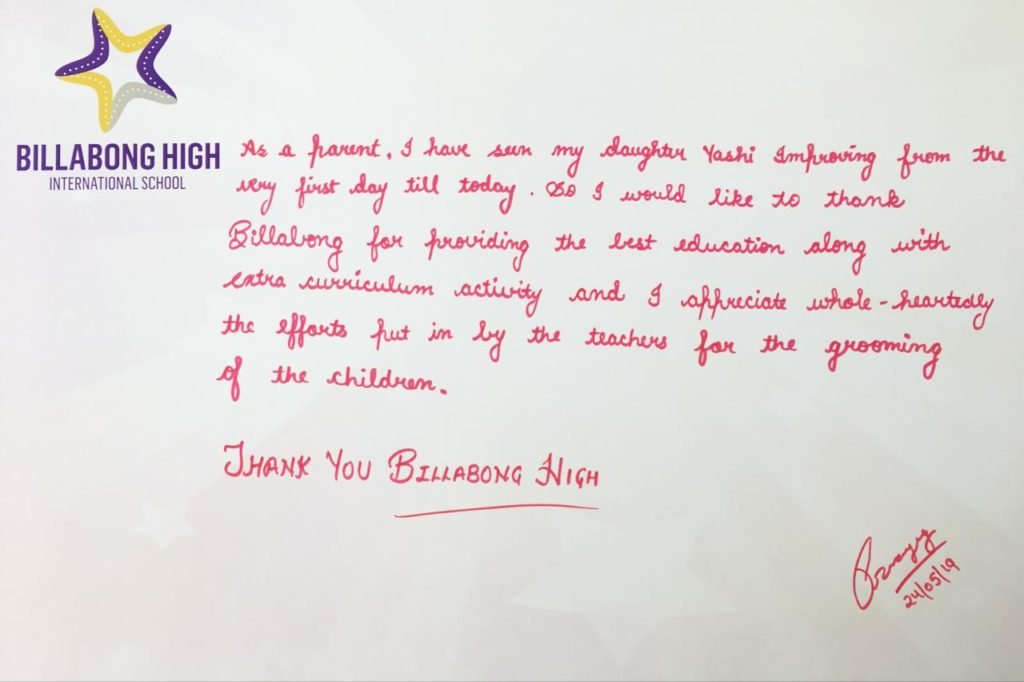 BILLABONG HIGH
INTERNATIONAL SCHOOL
As a parent, I have seen my daughter Yashi Improving from the
very first day till today. So I would like to thank
Billabong for providing the best education along with
extra curriculum activity and I appreciate whole-heartedly
the efforts put in by the teachers for the grooming
of the children.
THANK YOU BILLABONG HIGH
24/05/19